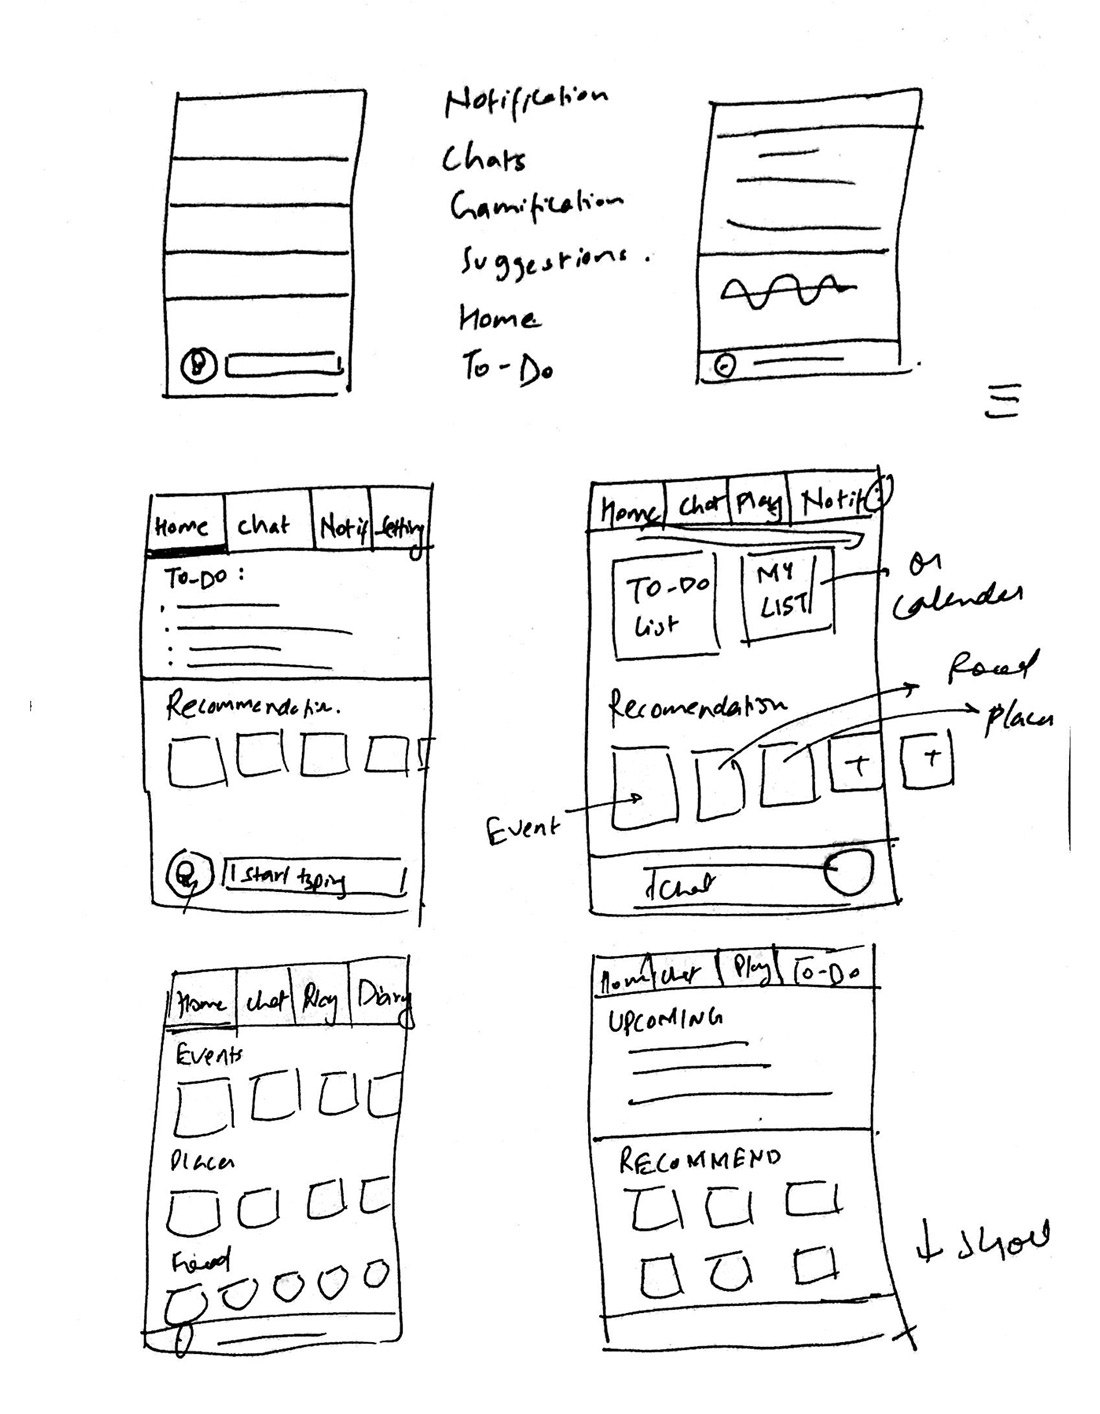 Notification
Chats
Gamification
Suggestions.
Home
To-Do
Home Chat Notif Setting
To-Do :
Recommendation.
start typing
Home Chat Play Notif
TO-DO
List
MY
LIST
or
Calender
Recomendation
Places
Event
Chat
Home Chat Play Diary
Events
Places
Home Chat Play To-Do
UPCOMING
RECOMMEND